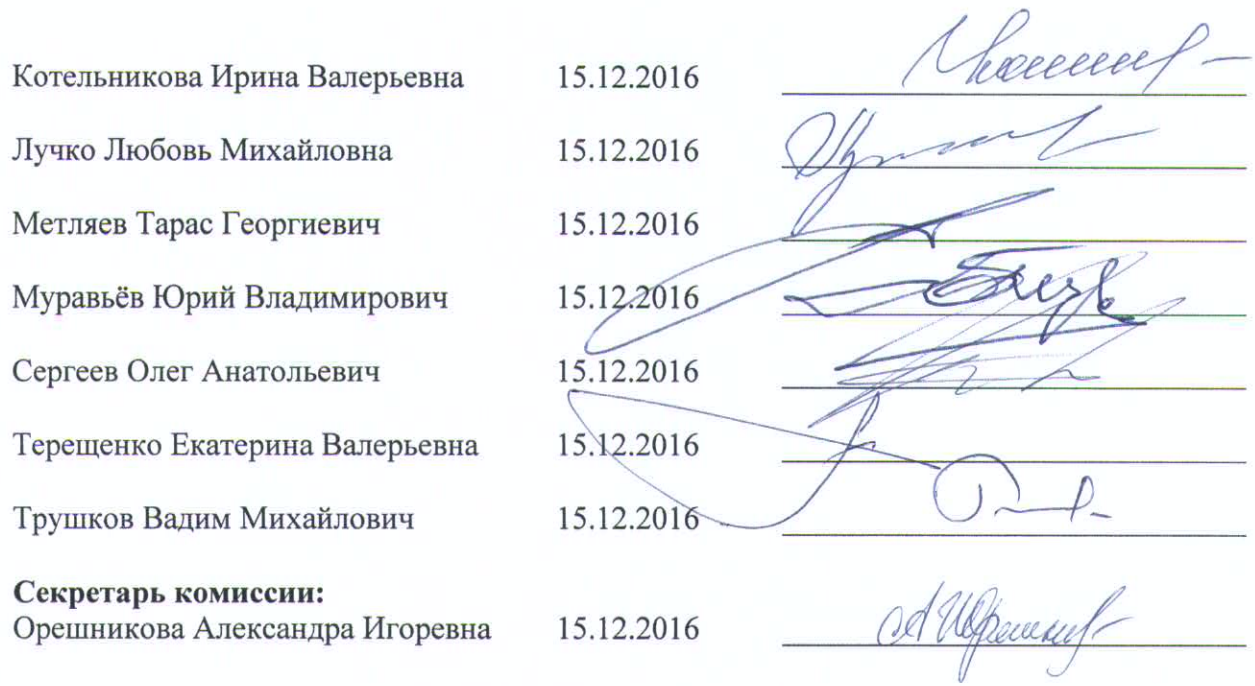 Котельникова Ирина Валерьевна 15.12.2016
Лучко Любовь Михайловна 15.12.2016
Метляев Тарас Георгиевич 15.12.2016
Муравьёв Юрий Владимирович 15.12.2016
Сергеев Олег Анатольевич 15.12.2016
Терещенко Екатерина Валерьевна 15.12.2016
Трушков Вадим Михайлович 15.12.2016
Секретарь комиссии:
Орешникова Александра Игоревна 15.12.2016